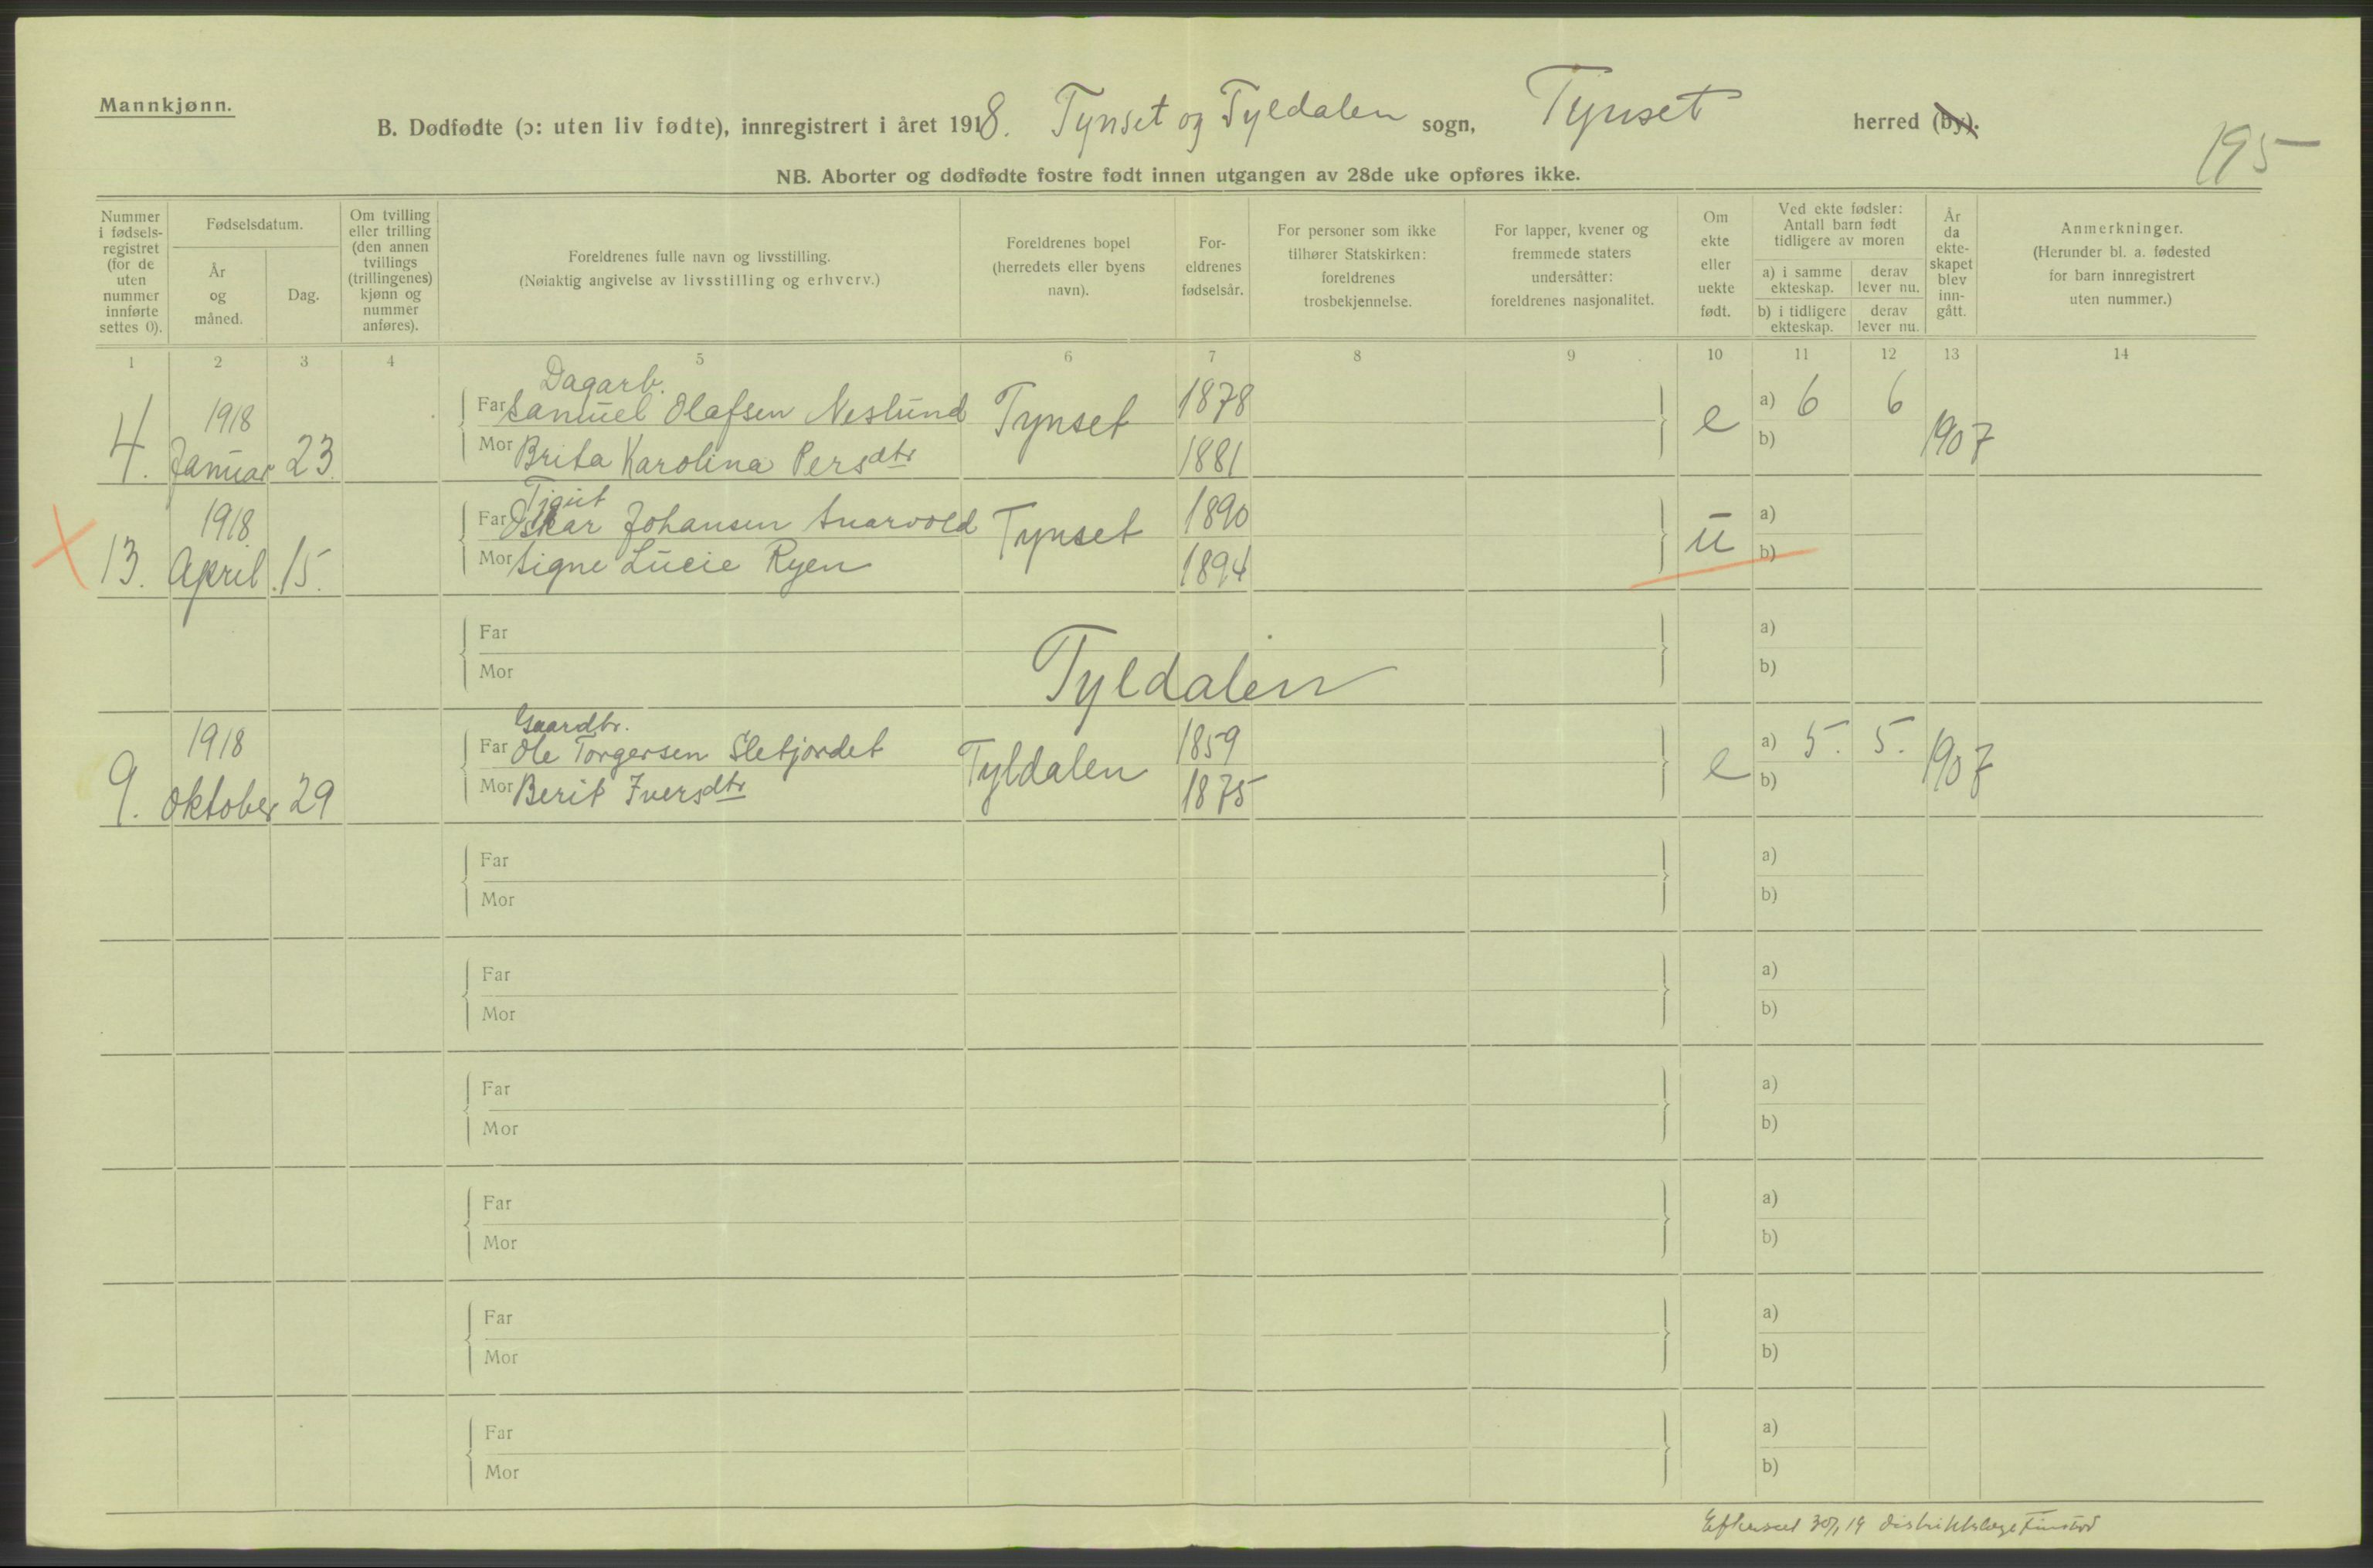 Mannkjønn.
B. Dødfødte (ɔ: uten liv fødte), innregistrert i året 1918. Tynset og Tyldalen sogn, Tynset herred (by).
195
NB. Aborter og dødfødte fostre født innen utgangen av 28de uke opføres ikke.
Nummer
i fødsels-
registret
(for de
uten
nummer
innførte
settes 0).
Fødselsdatum.
År
og
måned.
Dag.
Om tvilling
eller trilling
(den annen
tviilings
(trillingenes)
kjønn og
nummer
anføres).
Foreldrenes fulle navn og livsstilling.
(Nøiaktig angivelse av livsstilling og erhverv.)
Foreldrenes bopel
(herredets eller byens
navn).
For-
eldrenes
fødselsår.
For personer som ikke
tilhører Statskirken:
foreldrenes
trosbekjennelse.
For lapper, kvener og
fremmede staters
undersåtter:
foreldrenes nasjonalitet.
Om
ekte
eller
uekte
født.
Ved ekte fødsler:
Antall barn født
tidligere av moren
a) i samme
ekteskap.
derav
lever nu.
b) i tidligere
ekteskap.
derav
lever nu.
År
da
ekte-
skapet
blev
inn-
gått.
Anmerkninger.
(Herunder bl. a. fødested
for barn innregistrert
uten nummer.)
1 2 3 4 5 6 7 8 9 10 11 12 13 14
Dagarb.
Far Samuel Olafsen Neslund 1878 a) 6 6
4. 1918 Januar 23. Tynset e 1907
Mor Brita Karolina Persdtr 1881 b)
Far Oskar Johansen Snarvold 1890 a)
13. 1918 April 15. Tynset u
Mor Signe Lucie Ryen 1894 b)
Far a)
Tyldalen
Mor b)
Gaardbr.
Far Ole Torgersen Sletjordet 1859 a) 5. 5.
9. 1918 Oktober 29 Tyldalen e 1907
Mor Berit Iversdtr 1875 b)
Far a)
Mor b)
Far a)
Mor b)
Far a)
Mor b)
Far a)
Mor b)
Far a)
Mor b)
Far a)
Mor b)
Efterseet 30/1 19 distriktslæge